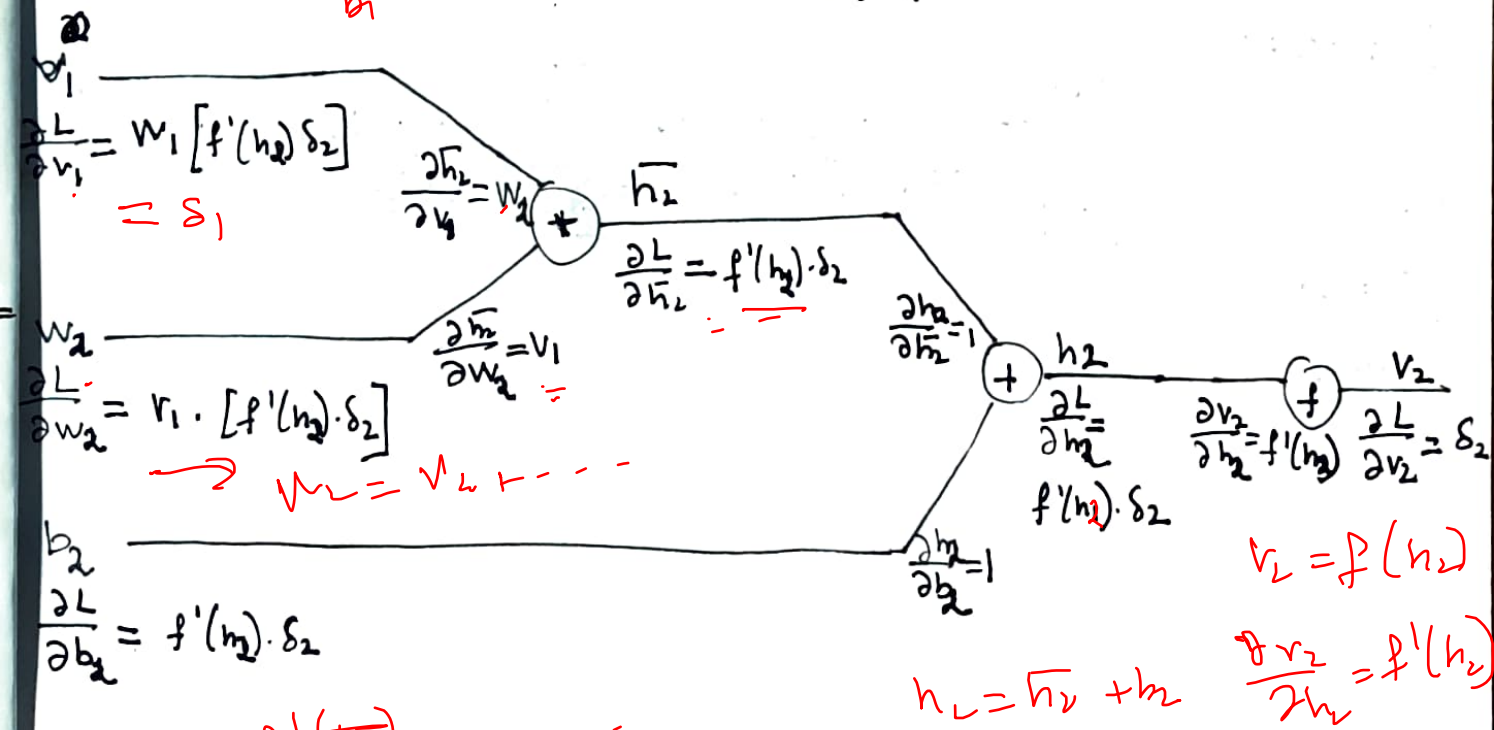 v₁
∂L/∂v₁ = W₁ [f'(h₂) δ₂]
= δ₁
∂h̄₂/∂v₁ = W₂
*
h̄₂
∂L/∂h̄₂ = f'(h₂)·δ₂
W₂
∂h̄₂/∂W₂ = v₁
∂L/∂W₂ = v₁ · [f'(h₂)·δ₂]
∂h₂/∂h̄₂ = 1
+
h₂
∂L/∂h₂ =
f'(h₂)·δ₂
∂v₂/∂h₂ = f'(h₂)
f
v₂
∂L/∂v₂ = δ₂
b₂
∂h₂/∂b₂ = 1
∂L/∂b₂ = f'(h₂)·δ₂
v₂ = f(h₂)
h₂ = h̄₂ + b₂
∂v₂/∂h₂ = f'(h₂)